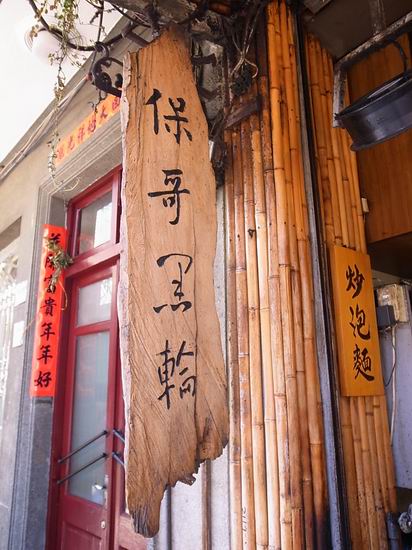 保哥黑輪
炒泡麵
貴年年好